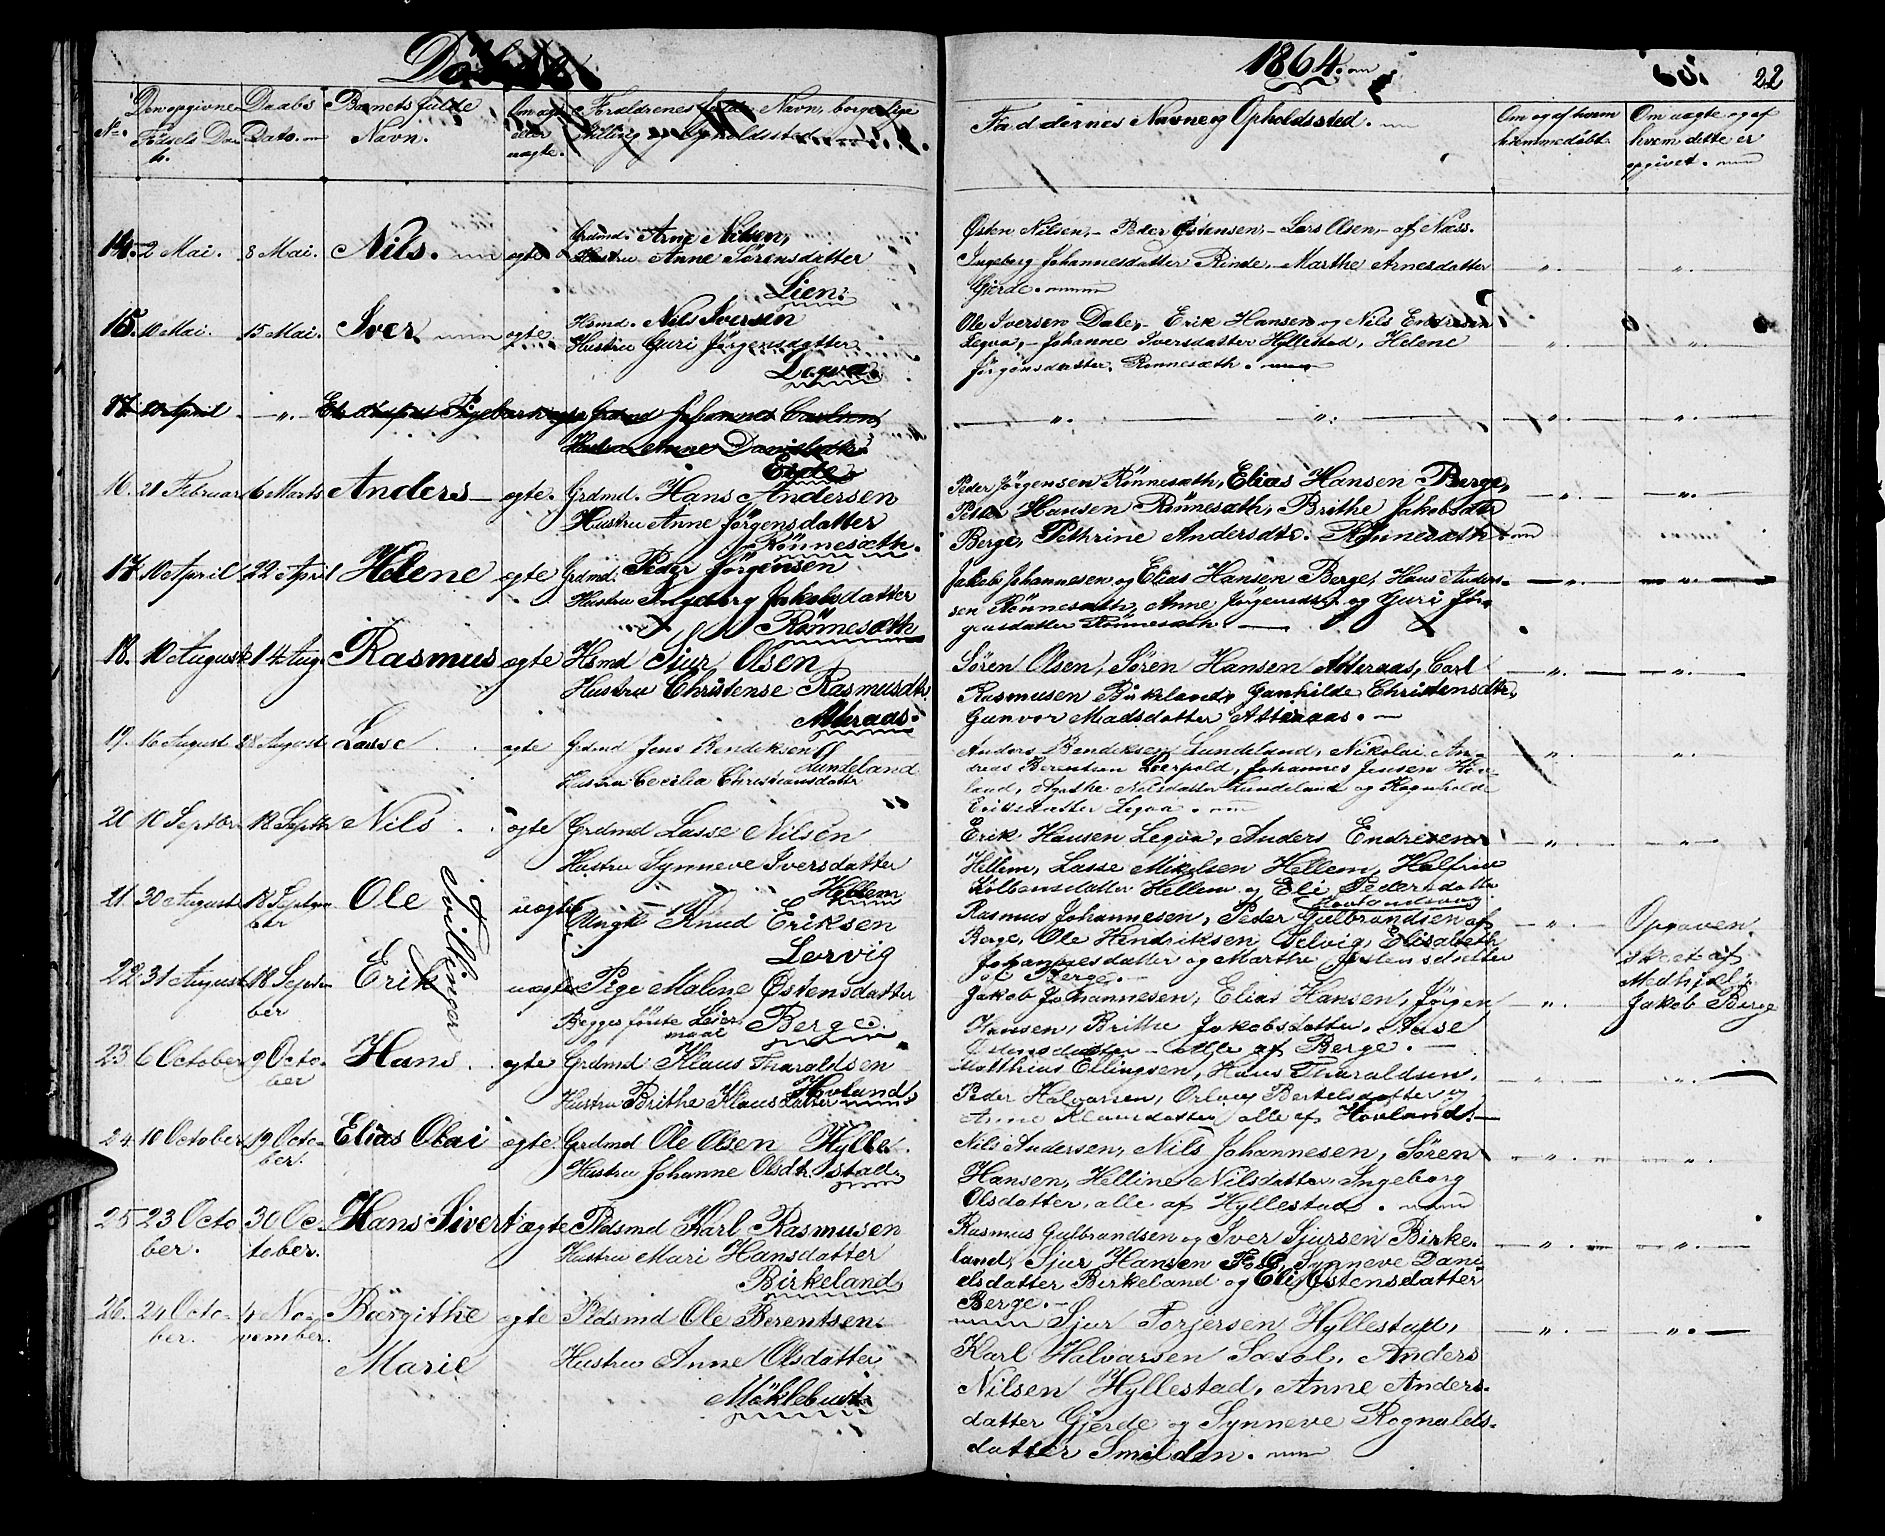 1864.
22
No.
Den opgivne
Fødsels Da
Daabs
Dato.
Barnets fulde
Navn.
Om ægte
eller
uægte.
Forældrenes fulde Navn, borgerlige
Stilling og Opholdssted.
Faddernes Navne og Opholdssted.
Om og af hvem
hjemmedøbt.
Om uægte og af
hvem dette er
opgivet.
14. 2 Mai. 8 Mai. Nils. ægte Grdmd. Arne Nilsen,
Hustru Anne Sørensdatter
Lien.
Østen Nilsen, - Peder Østensen, - Lars Olsen, - af Næss.
Ingeborg Johannesdatter Rinde, - Marthe Arnesdatter
Gjerde.
15. 10 Mai. 15 Mai. Iver ægte. Hsmd. Nils Iversen
Hustru Guri Jørgensdatter
Legva.
Ole Iversen Dale, - Erik Hansen og Nils Endresen
Legva, - Johanne Iversdatter Hyllestad, Helene
Jørgensdatter, Rønnesæth.
Grdmd Johannes
Hustru Anne
Eide
16. 21 Februar 6 Marts Anders ægte. Grdmd. Hans Andersen
Hustru Anne Jørgensdatter
Rönnesæth.
Peder Jørgensen Rønnesæth, Elias Hansen Berge,
Peder Hansen Rønnesæth, Brithe Jakobsdtr
Berge, Pethrine Andersdtr. Rønnesæth
17. 10 April 22 April Helene ægte Grdmd. Peder Jörgensen
Hustru Ingeborg Jakobsdatter
Rönnesæth
Jakob Johannesen og Elias Hansen Berge, Hans Ander-
sen Rønnesæth, Anne Jørgensdtr og Guri Jør-
gensdatter Rønnesæth.
18. 10 August 14 Aug. Rasmus ægte Hsmd Sjur Olsen
Hustru Christense Rasmusdtr
Atteraas.
Søren Olsen, Søren Hansen Atteraas, Carl
Rasmusen Birkeland, Gunhilde Christensdtr,
Gunvor Madsdatter Atteraas.
19. 16 August 28 August Lasse ægte Grdmd Jens Bendiksen
Lundeland
Hustru Cecilia Christiansdatter
Anders Bendiksen Lundeland, Nikolai An-
dreas Berentsen Leerpold, Johannes Jensen Hov-
land, Agathe Nilsdatter Lundeland og Ragnhilde
Eriksdatter Legva.
20 10 Septbr 18 Septbr Nils ægte Grdmd Lasse Nilsen
Hustru Synneve Iversdatter
Hellem
Erik Hansen Legva, Anders Endresen
Hellem, Lasse Mikelsen Hellem,
Kolbensdatter Hellem og Eli Pedersdatter
21. 30 August 18 Septem
ber
Ole uægte Ungk Knud Eriksen
Lervig
Tvillinger
Rasmus Johannesen, Peder Gulbrandsen af
Berge, Ole Hendriksen Selvig, Elisabeth
Johannesdatter og Marthe Jostensdatter
af Berge.
Opgaven
skeet af
Medhjelp.
Jakob Berge
22. 31 August 18 Septem
ber
Erik uægte Pige Maline Østensdatter
Begges første Leier
maal Berge.
Jakob Johannesen, Elias Hansen, Jørgen
Hansen, Brithe Jakobsdatter, Aase
Østensdatter - alle af Berge.
23 6 October 9 Octo-
ber
Hans ægte Grdmd Klaus Tharaldsen
Hustru Brithe Klausdatter Hovland.
Matthias Ellingsen, Hans Tharaldsen,
Peder Halvarsen, Orlaug Bertelsdatter og
Anne Klausdatter alle af Hovland.
24. 10 October 19 Octo-
ber.
Elias Olai ægte. Grdmd Ole Olsen Hylle
Hustru Johanne Olsdtr. stad
Nils Andersen, Nils Johannesen, Søren
Hansen, Helline Nilsdatter Ingeborg
Olsdatter, alle af Hyllestad.
25 23 Octo
ber.
30 Oc
tober.
Hans Sivert ægte Pldsmd Karl Rasmusen
Hustru Mari Hansdatter
Birkeland
Rasmus Gulbrandsen og Iver Sjursen Birke-
land, Sjur Hansen Foss, Synneve Dani
elsdatter Birkeland og Eli Østensdatter
Berge.
26. 24 Octo-
ber.
4 No-
vember.
Bærgithe
Marie
ægte Pldsmd Ole Berentsen
Hustru Anne Olsdatter
Möklebust
Sjur Torjersen Hyllestad,
Karl Halvarsen Sæsol, Anders
Nilsen Hyllestad, Anne Anders-
datter Gjerde og Synneve Rognalds-
datter Smilden.